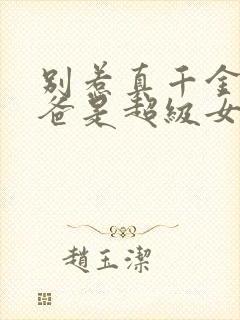 别惹真千金
爸是超级女
趙玉潔